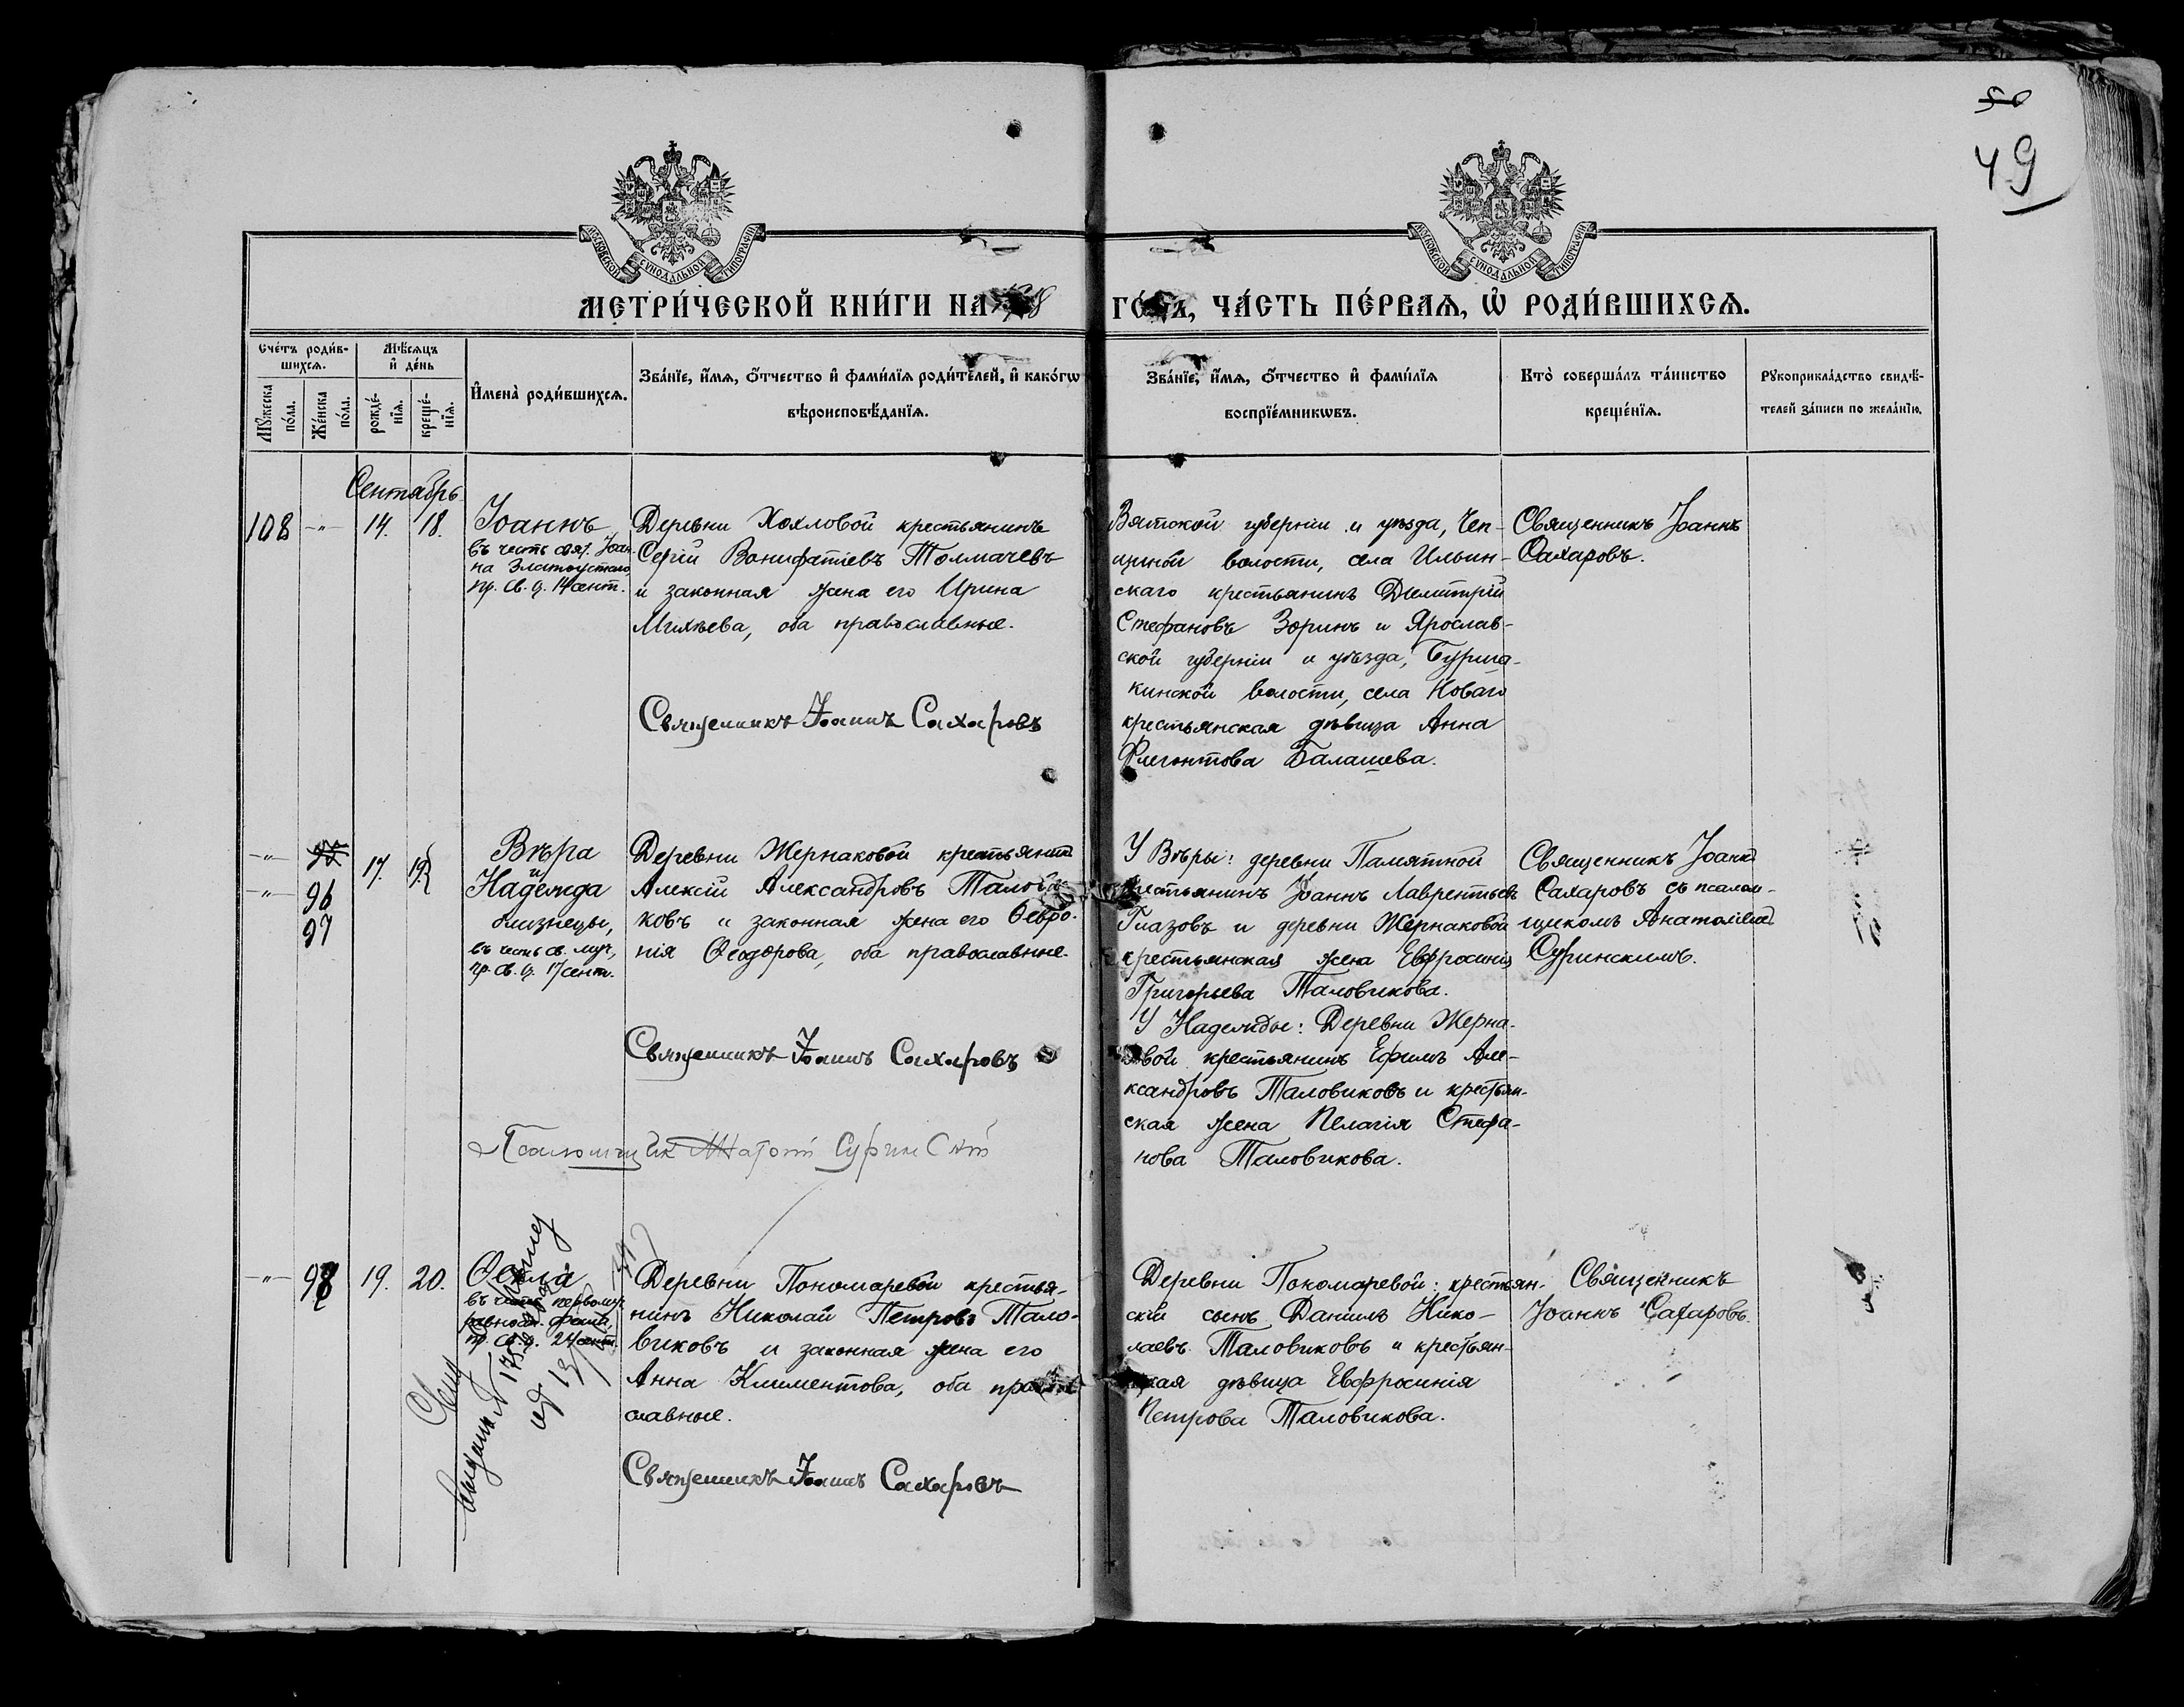 50
49
МОСКОВСКОЙ СѴНОДАЛЬНОЙ ТИПОГРАФІИ
МОСКОВСКОЙ СѴНОДАЛЬНОЙ ТИПОГРАФІИ
МЕТРИ́ЧЕСКОЙ КНИ́ГИ НА 8 ГО́ДЪ, ЧА́СТЬ ПЕ́РВАѦ, Ѡ҆ РОДИ́ВШИХСѦ.
Сче́тъ роди́в-
шихсѧ.
Мꙋ́жеска по́ла.
Же́нска по́ла.
Мѣ́сѧцъ
и҆ де́нь
рожде́-
нїѧ.
креще́-
нїѧ.
И҆мена̀ роди́вшихсѧ.
Зва́нїе, и҆́мѧ, ѻ҆́тчество и҆ фами́лїѧ роди́телей, и҆ како́гѡ
вѣроисповѣ́данїѧ.
Зва́нїе, и҆́мѧ, ѻ҆́тчество и҆ фами́лїѧ
воспрїе́мникѡвъ.
Кто̀ соверша́лъ та́инство
креще́нїѧ.
Рꙋкоприкла́дство свидѣ́-
телей за́писи по жела́нїю.
Сентябрь
108 -"- 14. 18.
Іоаннъ
въ честь свят. Іоан-
на Златоустаго,
пр. св. ц. 14 сент.
Деревни Хохловой крестьянинъ
Сергій Вонифатіевъ Толмачевъ
и законная жена его Ирина
Михѣева, оба православные.
Священникъ Іоаннъ Сахаровъ
Вятской губерніи и уѣзда, Чеп-
цкой волости, села Ильин-
скаго крестьянинъ Димитрій
Стефановъ Зоринъ и Ярослав-
ской губерніи и уѣзда, Бурма-
кинской волости, села Новаго
крестьянская дѣвица Анна
Флегонтова Балашева.
Священникъ Іоаннъ
Сахаровъ.
-"- 17. 19.
-"- 96
97
Вѣра
и
Надежда
близнецы,
въ честь св. муч.,
пр. св. ц. 17 сент.
Деревни Жернаковой крестьянинъ
Алексій Александровъ Талови-
ковъ и законная жена его Ѳевро-
нія Ѳеодорова, оба православные.
Священникъ Іоаннъ Сахаровъ
Псаломщик Суринскій
У Вѣры: деревни Памятной
крестьянинъ Іоаннъ Лаврентьевъ
Глазовъ и деревни Жернаковой
крестьянская жена Евфросинія
Григорьева Таловикова.
У Надежды: Деревни Жерна-
ковой крестьянинъ Ефимъ Але-
ксандровъ Таловиковъ и крестьян-
ская жена Пелагія Стефа-
нова Таловикова.
Священникъ Іоаннъ
Сахаровъ съ псалом-
щикомъ Анатоліемъ
Суринскимъ.
-"- 98 19. 20.
Ѳекла
въ честь первомуч.
равноап. Ѳеклы,
пр. св. ц. 24 сент.
Деревни Пономаревой крестья-
нинъ Николай Петровъ Тало-
виковъ и законная жена его
Анна Климентова, оба право-
славные.
Священникъ Іоаннъ Сахаровъ
Деревни Пономаревой: крестьян-
скій сынъ Даніилъ Нико-
лаевъ Таловиковъ и крестьян-
ская дѣвица Евфросинія
Петрова Таловикова.
Священникъ
Іоаннъ Сахаровъ.